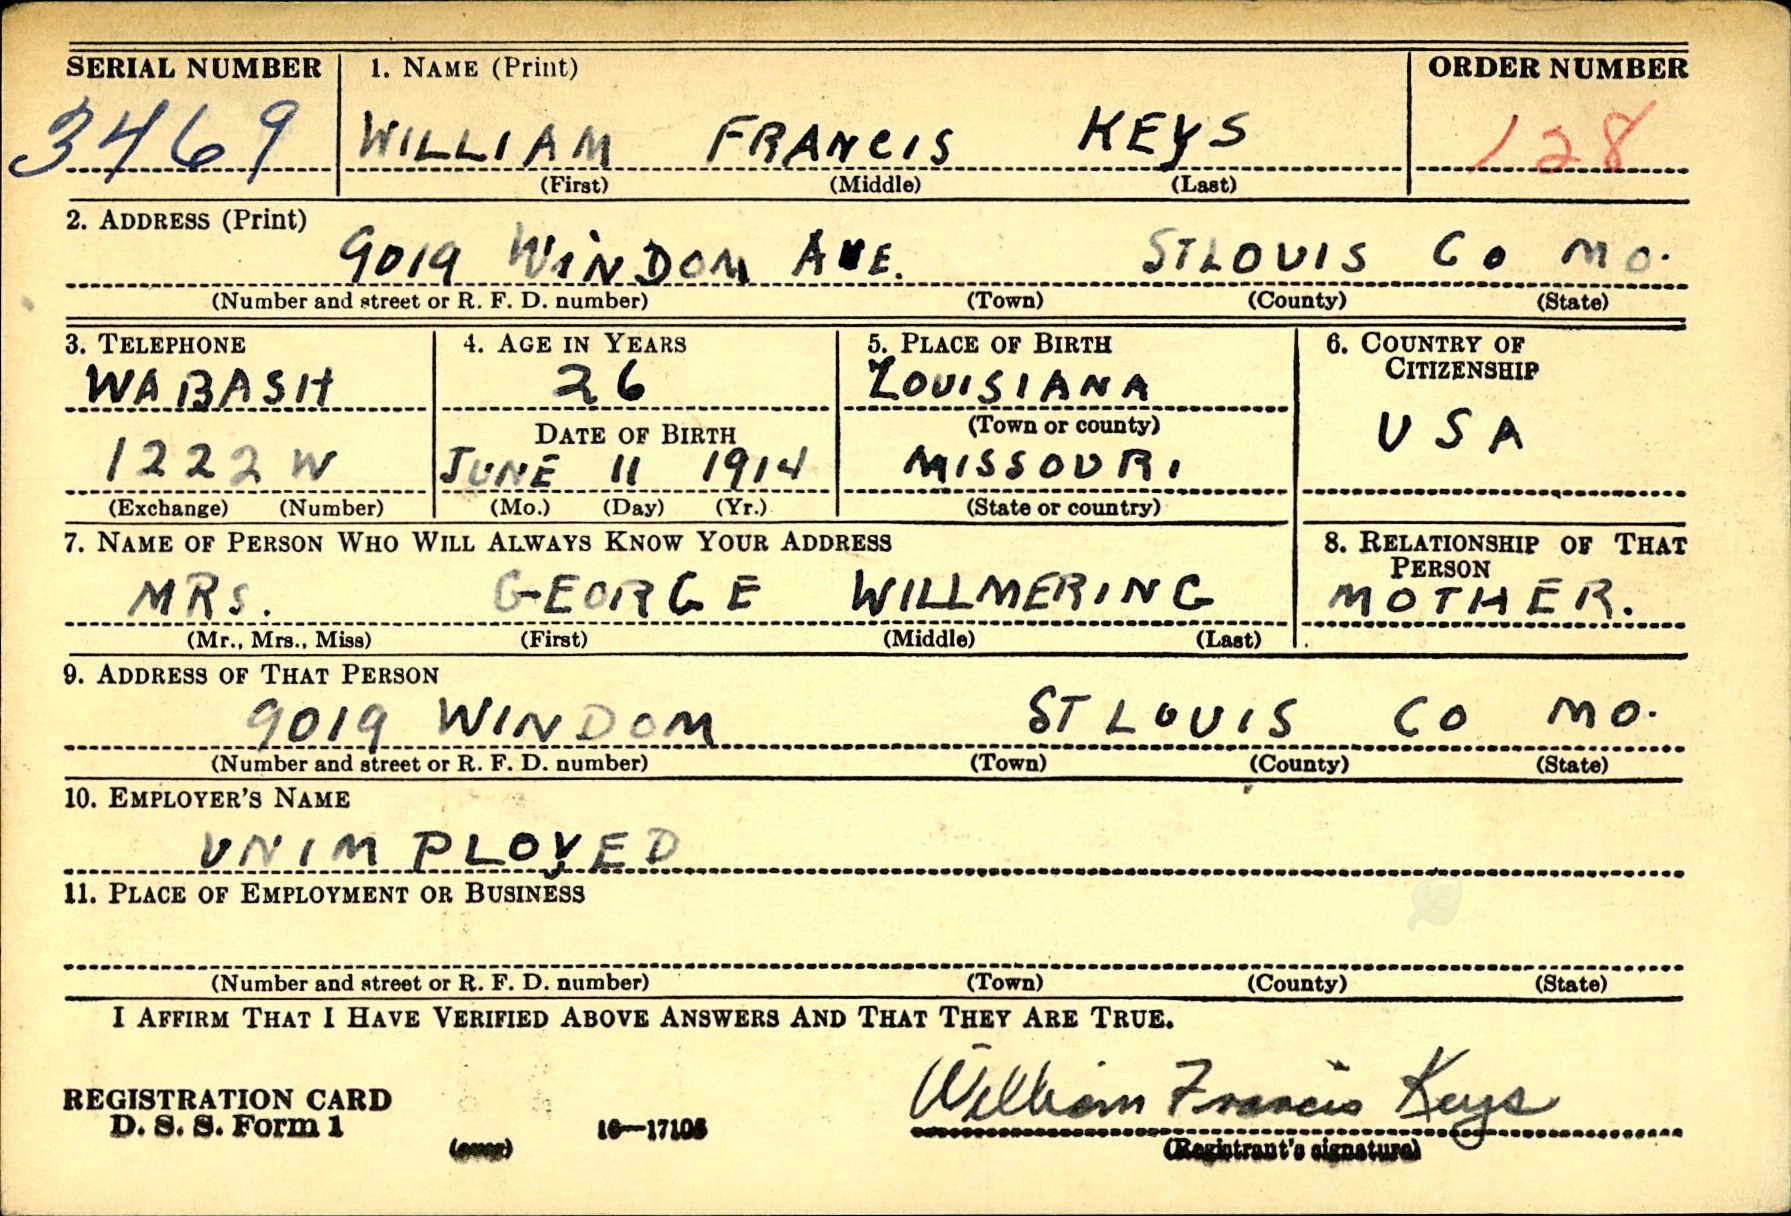 SERIAL NUMBER 1. NAME (Print) ORDER NUMBER
3469 WILLIAM FRANCIS KEYS 128
(First) (Middle) (Last)
2. ADDRESS (Print)
9019 WINDOM AVE. ST LOUIS CO MO.
(Number and street or R. F. D. number) (Town) (County) (State)
3. TELEPHONE 4. AGE IN YEARS 5. PLACE OF BIRTH 6. COUNTRY OF
CITIZENSHIP
WABASH 26 LOUISIANA
(Town or county)
DATE OF BIRTH USA
1222W JUNE 11 1914 MISSOURI
(Exchange) (Number) (Mo.) (Day) (Yr.) (State or country)
7. NAME OF PERSON WHO WILL ALWAYS KNOW YOUR ADDRESS 8. RELATIONSHIP OF THAT
PERSON
MRS. GEORGE WILLMERING MOTHER.
(Mr., Mrs., Miss) (First) (Middle) (Last)
9. ADDRESS OF THAT PERSON
9019 WINDOM ST LOUIS CO MO.
(Number and street or R. F. D. number) (Town) (County) (State)
10. EMPLOYER'S NAME
UNIMPLOYED
11. PLACE OF EMPLOYMENT OR BUSINESS
(Number and street or R. F. D. number) (Town) (County) (State)
I AFFIRM THAT I HAVE VERIFIED ABOVE ANSWERS AND THAT THEY ARE TRUE.
William Francis Keys
REGISTRATION CARD
D. S. S. Form 1 (over) 16—17105 (Registrant's signature)